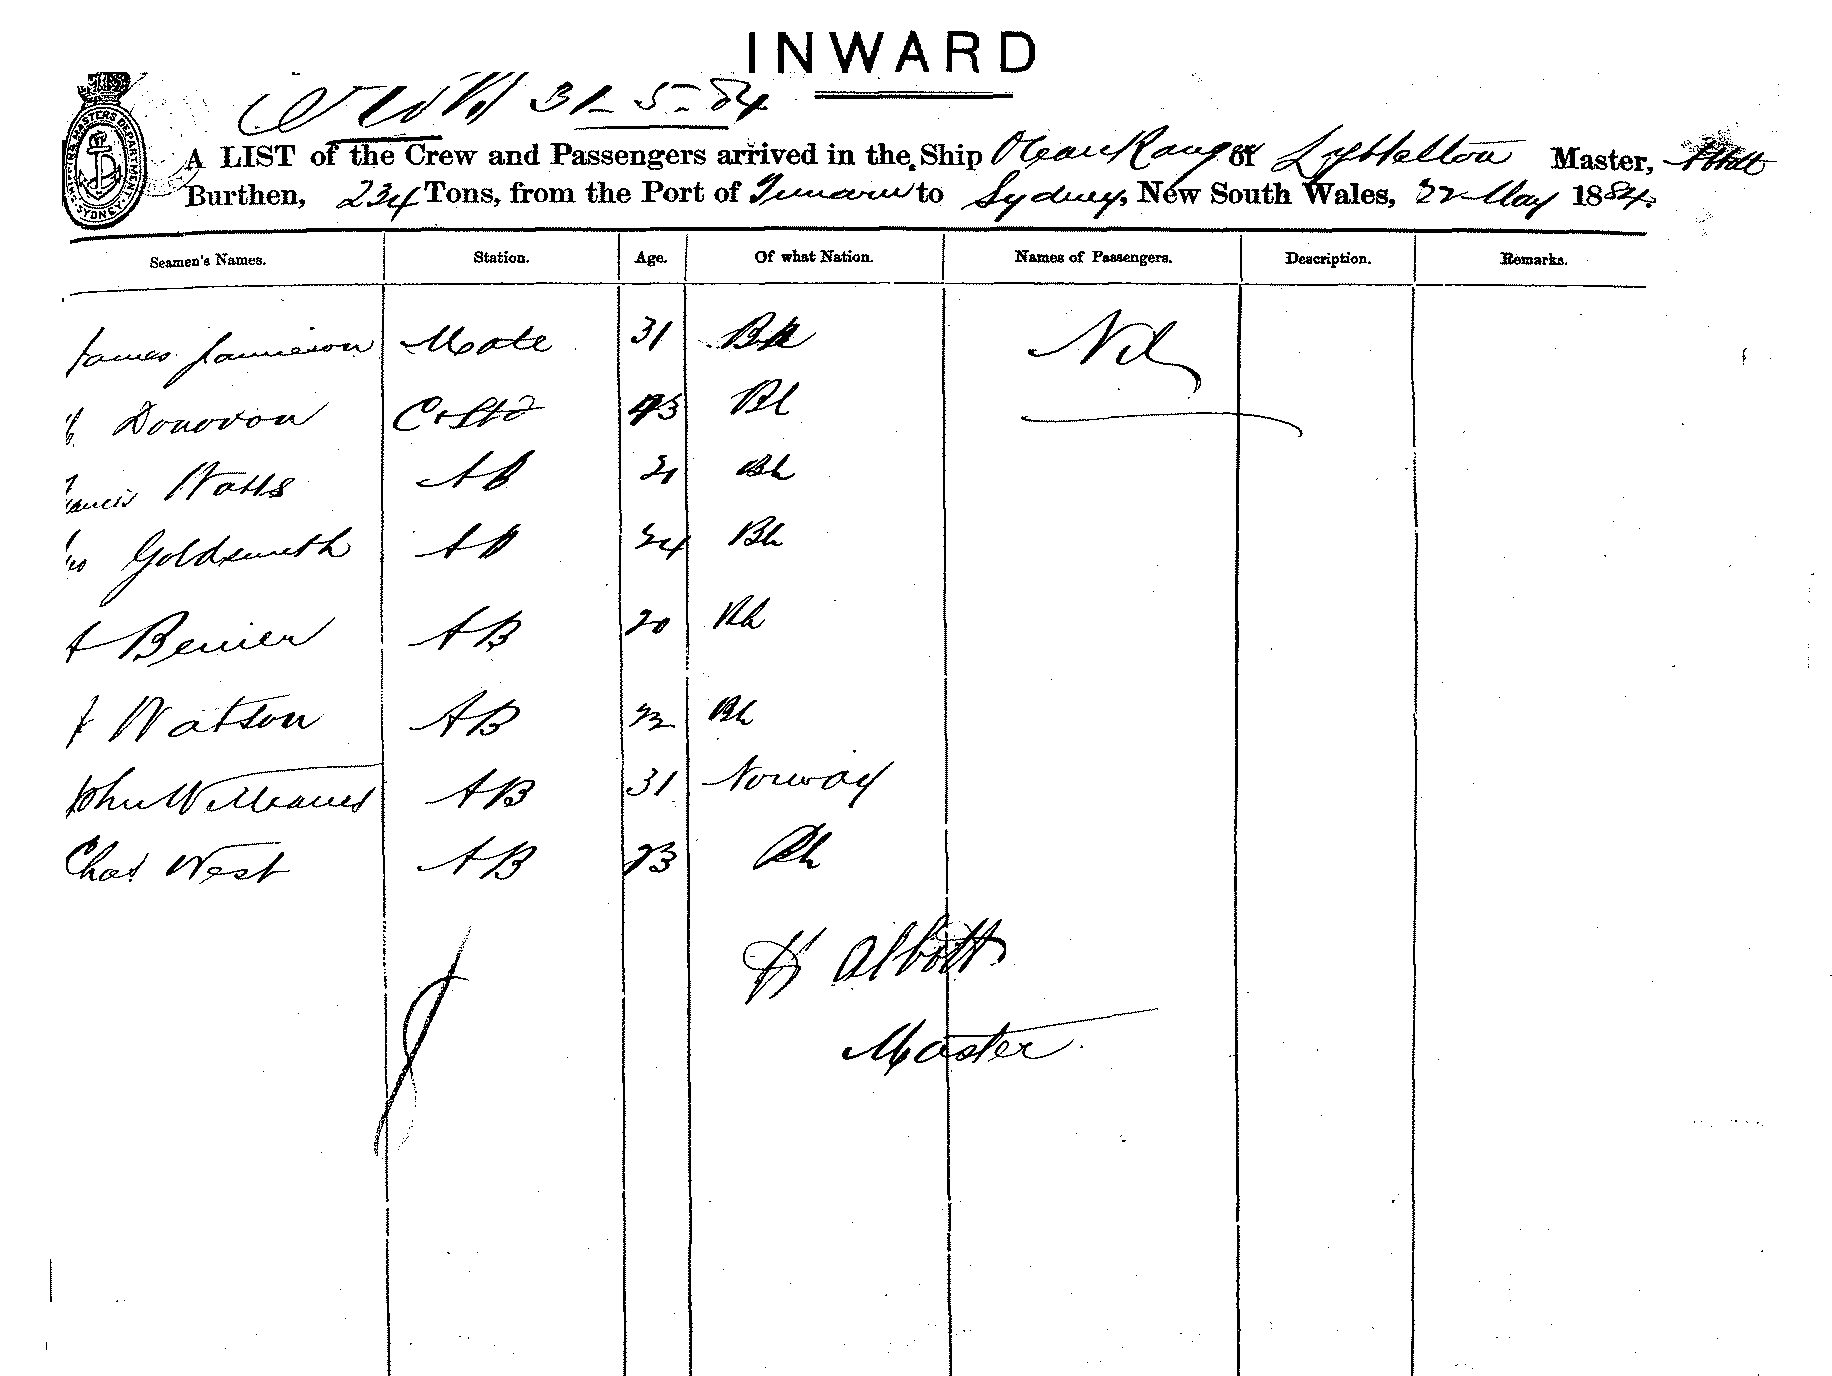 INWARD
31-5-84
A LIST of the Crew and Passengers arrived in the Ship Ocean Ranger of Lyttelton Master, Abbott
Burthen, 234 Tons, from the Port of Timaru to Sydney, New South Wales, 22 May 1884.
SHIPPING MASTERS DEPARTMENT SYDNEY
Seamen's Names. Station. Age. Of what Nation. Names of Passengers. Description. Remarks.
James Jamieson Mate 31 Nil
Donovon C & Std
Watts AB 21 Bh
Goldsmith AB 24 Bh
A AB 20 Bh
Watson AB 22 Bh
John Williams AB 31 Norway
Chas West AB 23 Bh
H Abbott
Master